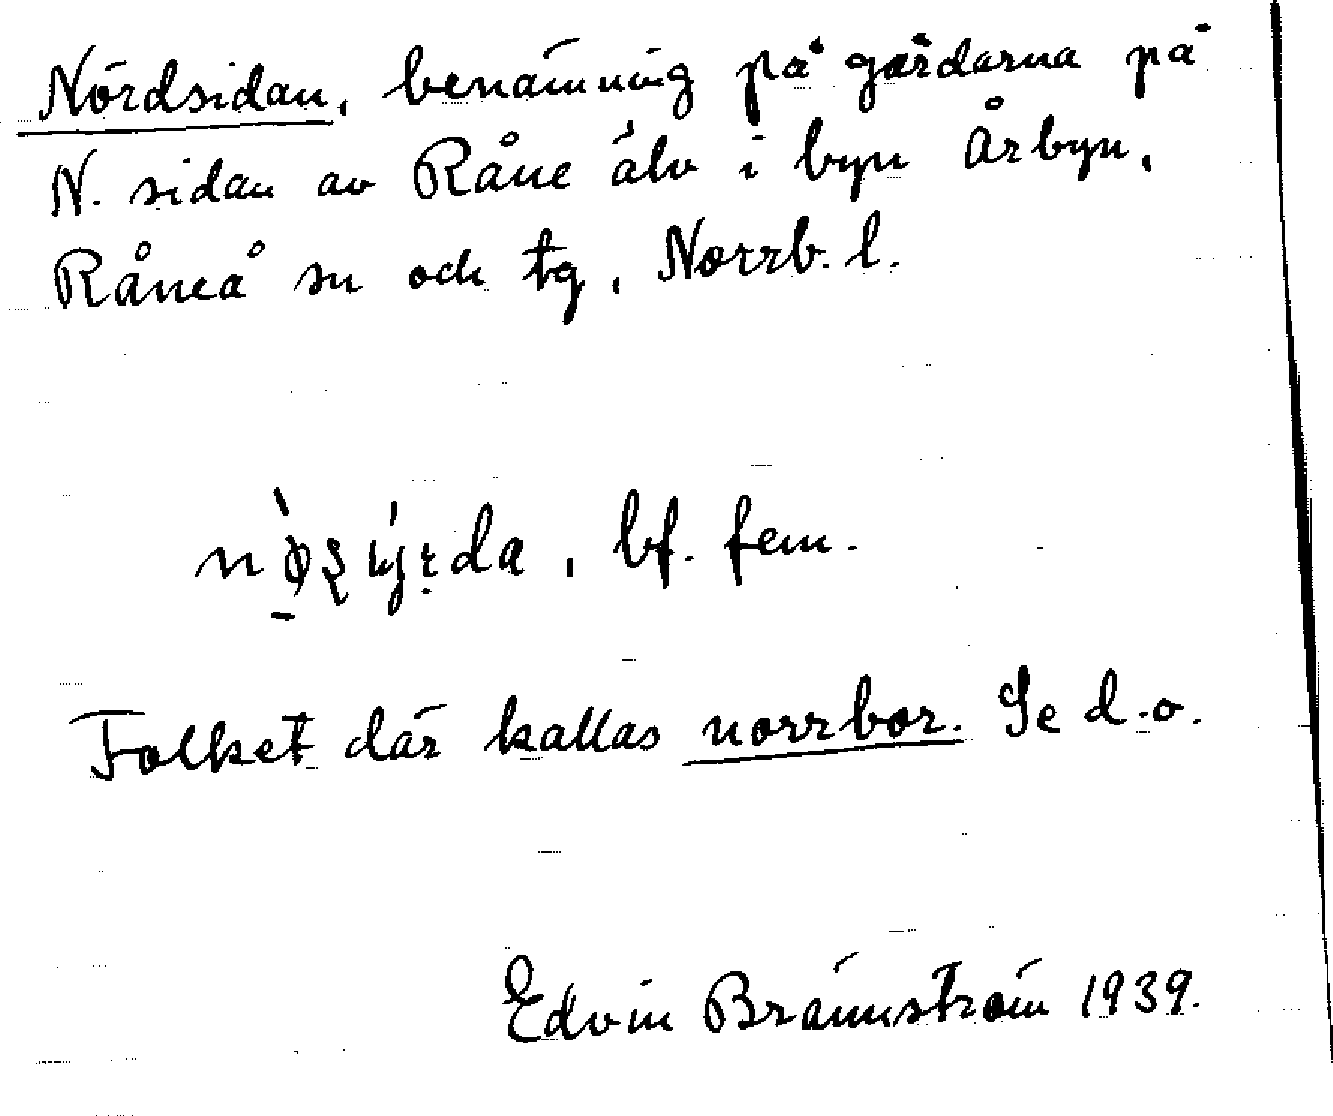 Nördsidan, benämning på gårdarna på
N. sidan av Råne älv i byn Årbyn,
Råneå sn och tg, Norrb. l.
, bf. fem.
Folket där kallas norrbor. Se d.o.
Edvin Brännström 1939.